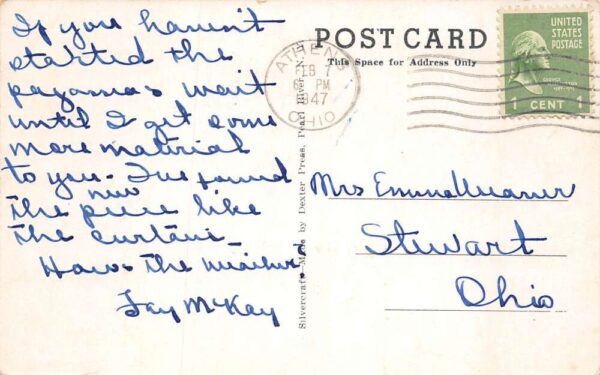 If you haven't
started the
pajamas wait
until I get some
more material
to you. I've found
new
the piece like
the curtain
How's the
Fay McKay
POST CARD
This Space for Address Only
ATHENS
FEB 7
6 PM
1947
OHIO
UNITED
STATES
POSTAGE
1 CENT 1
Silvercraft—Made by Dexter Press, Pearl River, N.Y.
Mrs
Stewart
Ohio